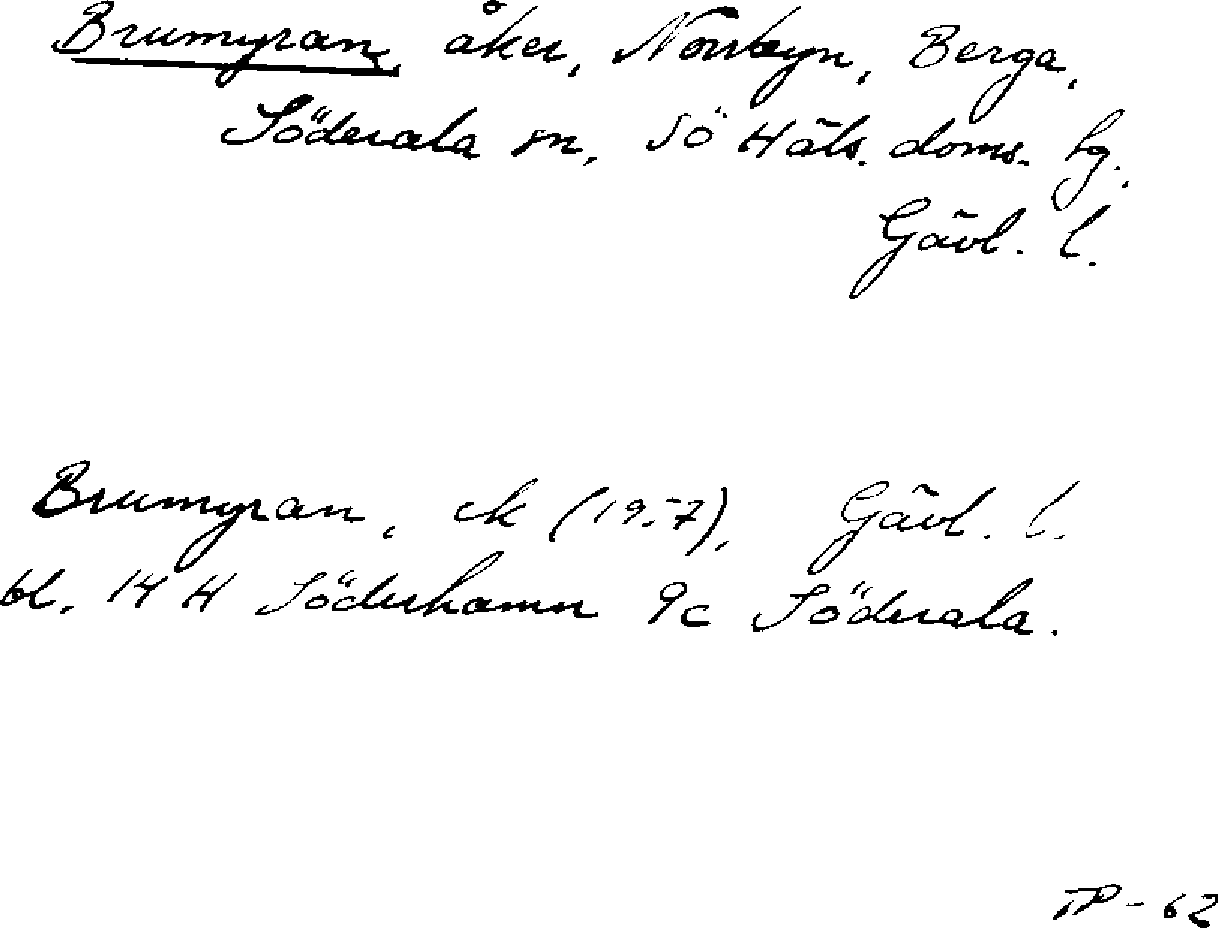 Brumyran, åker, Norrbyn, Berga,
Söderala sn, Sö Häls. doms. hg.,
Gävl. l.
Brumyran, ek (1957), Gävl. l.
bl. 14 H Söderhamn 9c Söderala.
TP-62